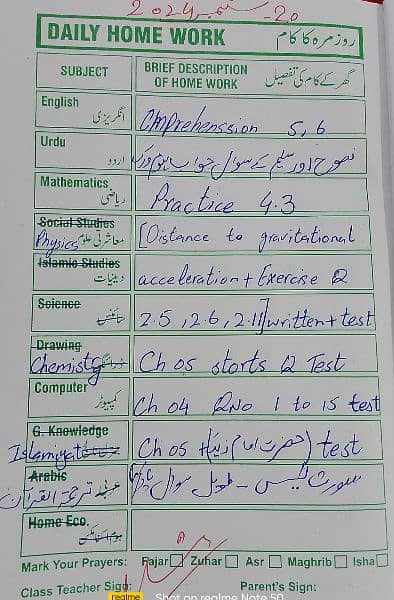 20-ستمبر 2024
DAILY HOME WORK روزمرہ کا کام
SUBJECT BRIEF DESCRIPTION OF HOME WORK گھر کے کام کی تفصیل
English انگریزی CMprehenssion 5,6
Urdu اردو نصوح اور سلیم کے سوال جواب ہوم ورک
Mathematics ریاضی Practice 4.3
Social Studies معاشرتی علوم
Physics [Distance to gravitational
Islamic Studies دینیات acceleration + Exercise Q
Science سائنس 2.5, 2.6, 2.11] written + test
Drawing ڈرائنگ
Chemistry Ch 05 starts Q Test
Computer کمپیوٹر Ch 04 QNo 1 to 15 test
G. Knowledge
Islamiyat Ch 05 (حضرت امام) test
Arabic عربی ترجمۃ القرآن سورت یٰس - طویل سوال
Home Eco. ہوم اکنامکس
Mark Your Prayers: Fajar Zuhar Asr Maghrib Isha
Class Teacher Sign: Parent's Sign:
realme Shot on realme Note 50